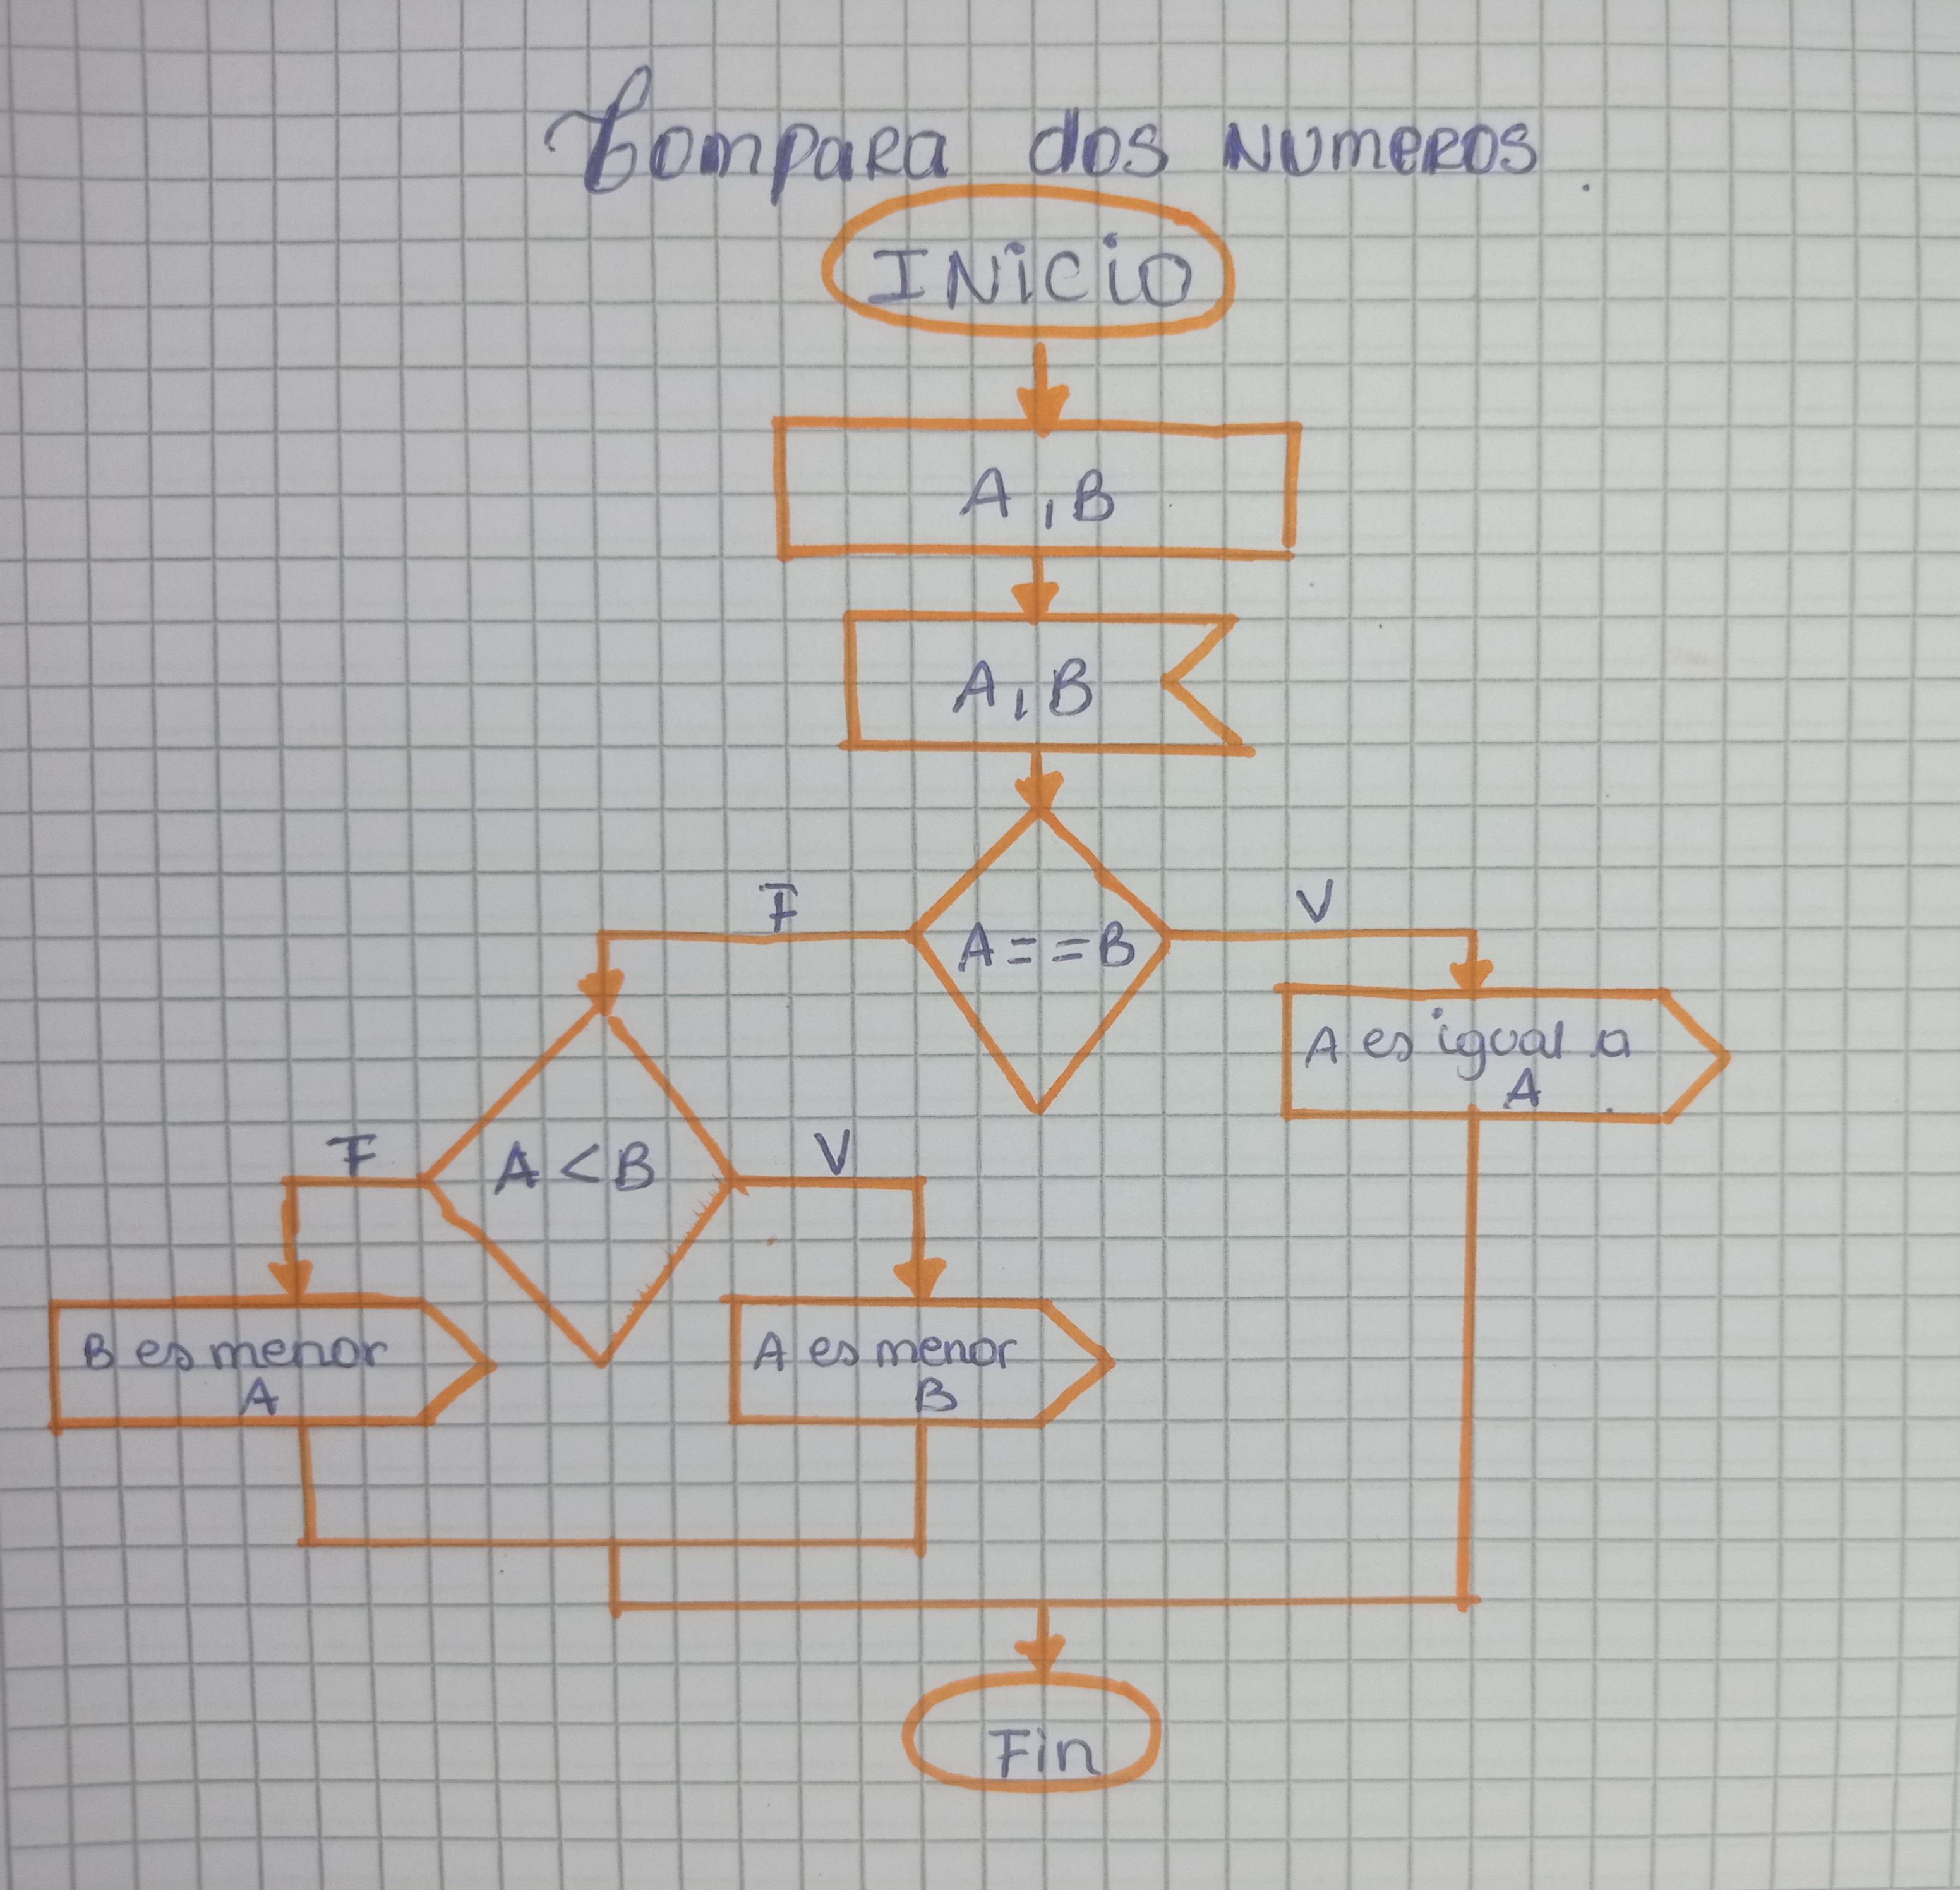 Compara dos Numeros
INicio
A, B
A, B
A==B
F
V
A es igual a
A
A<B
F
V
B es menor
A
A es menor
B
Fin